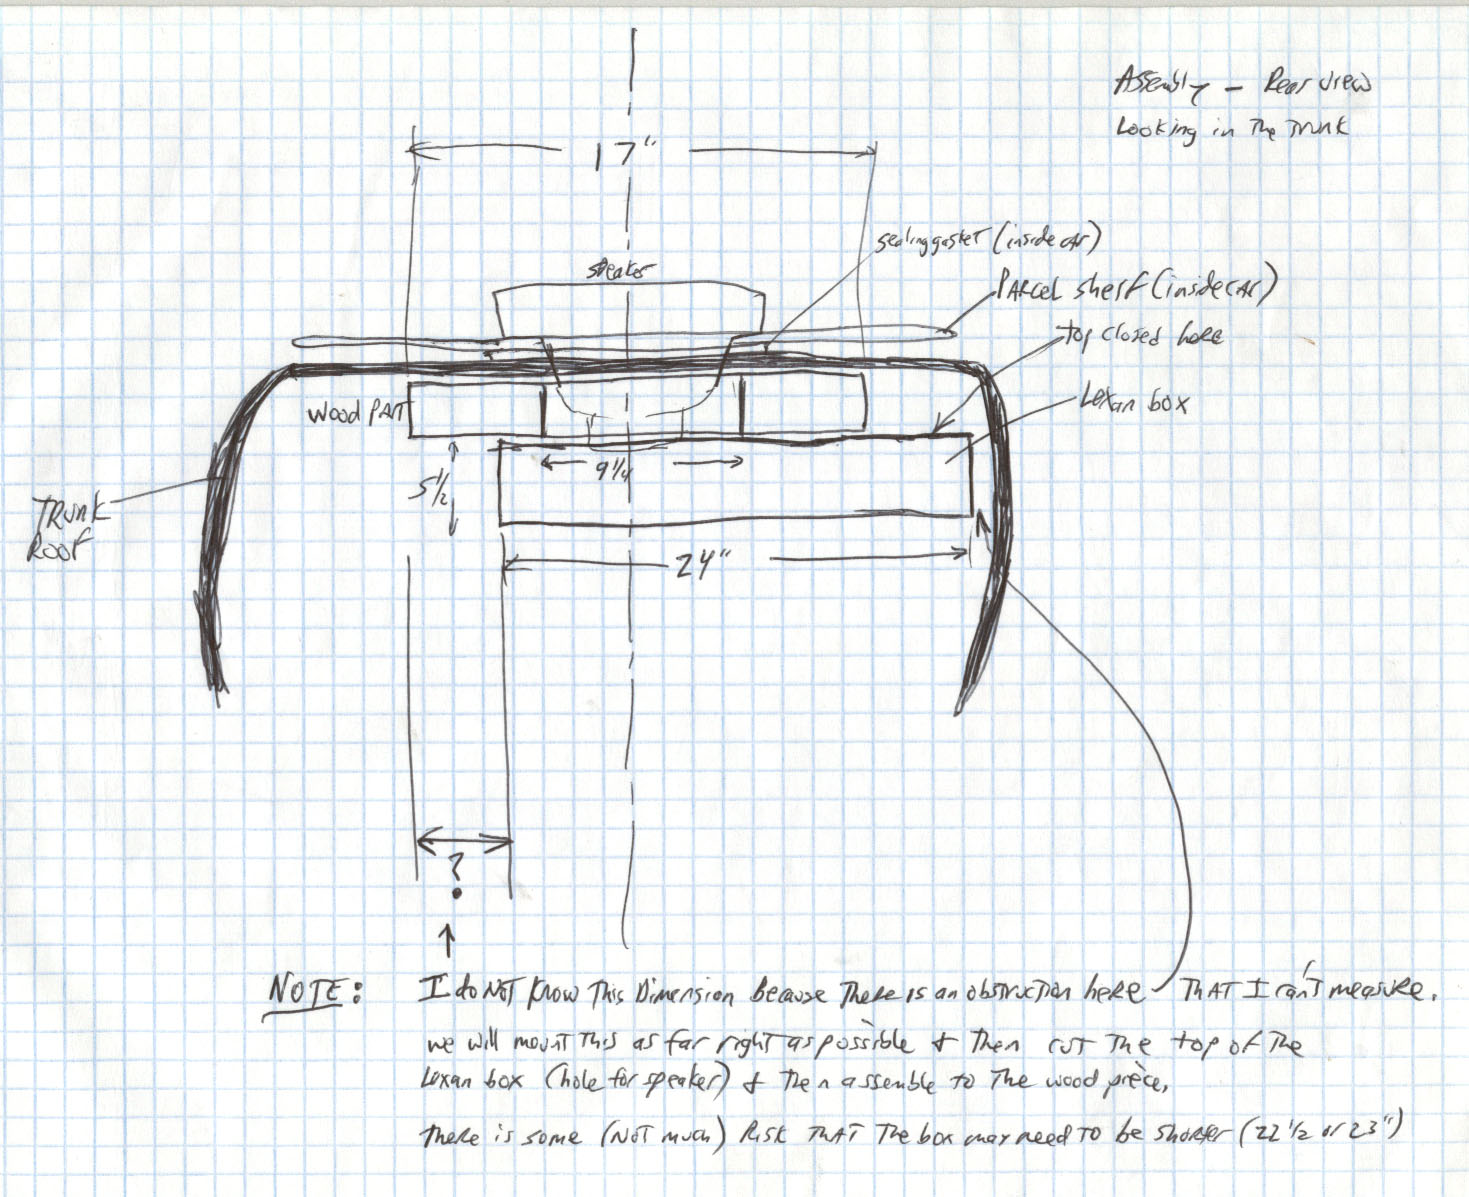 Assembly - Rear view
Looking in The Trunk
17"
sealing gasket (inside car)
speaker
PARCEL shelf (inside CAR)
top closed here
Lexan box
wood PART
9 1/4
5 1/2
TRUNK
ROOF
24"
?
NOTE: I do NOT know This Dimension because There is an obstruction here THAT I can't measure.
we will mount This as far right as possible & Then cut The top of The
Lexan box (hole for speaker) & then assemble to The wood piece.
There is some (NOT much) Risk THAT The box may need TO be shorter (22 1/2 or 23")